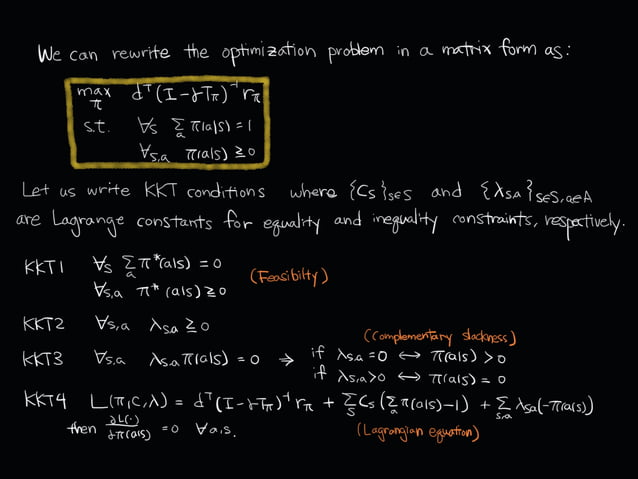 We can rewrite the optimization problem in a matrix form as:
max_π dᵀ(I-γT_π)⁻¹ r_π
s.t. ∀s Σ_a π(a|s) = 1
∀s,a π(a|s) ≥ 0
Let us write KKT conditions where {C_s}_{s∈S} and {λ_{s,a}}_{s∈S,a∈A}
are Lagrange constants for equality and inequality constraints, respectively.
KKT1 ∀s Σ_a π*(a|s) = 0
∀s,a π*(a|s) ≥ 0
(Feasibilty)
KKT2 ∀s,a λ_{s,a} ≥ 0
(Complementary slackness)
KKT3 ∀s,a λ_{s,a} π(a|s) = 0 → if λ_{s,a} = 0 ↔ π(a|s) > 0
if λ_{s,a} > 0 ↔ π(a|s) = 0
KKT4 L(π,C,λ) = dᵀ(I-γT_π)⁻¹ r_π + Σ_s C_s(Σ_a π(a|s)-1) + Σ_{s,a} λ_{s,a}(-π(a|s))
then ∂L(·)/∂π(a|s) = 0 ∀a,s.
(Lagrangian equation)